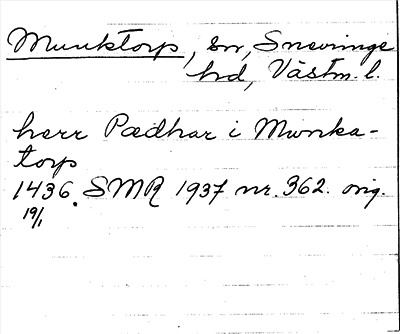 Munktorp, sn, Snevringe
hd, Västm. l.
herr Pædhar i Munka-
torp
1436. SMR 1937 nr. 362. orig.
19/1